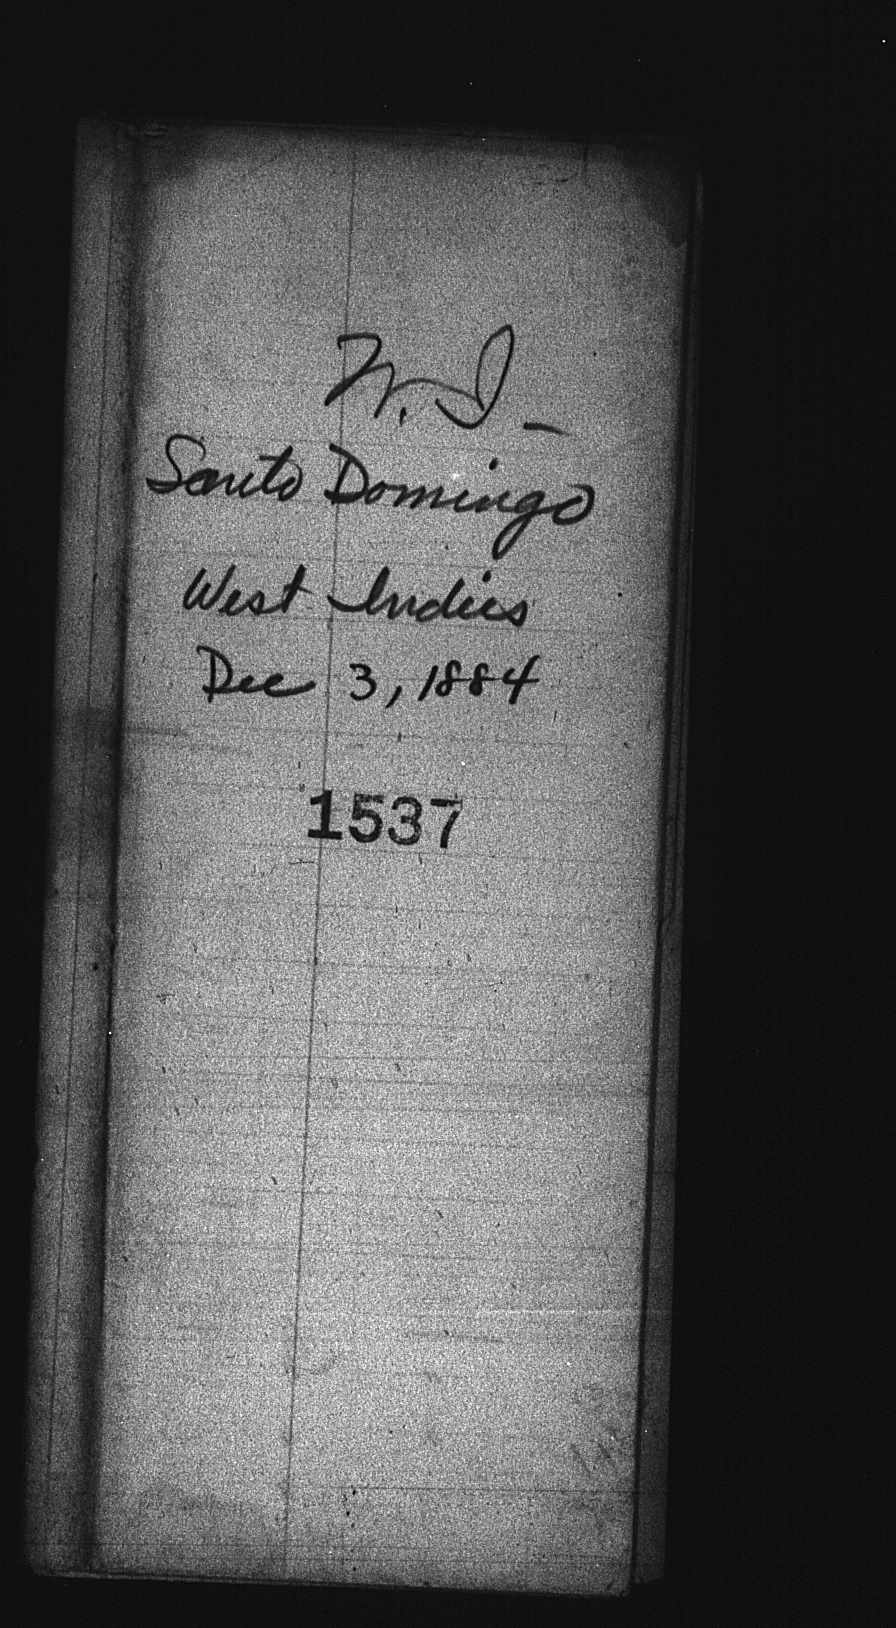 W. I -
Santo Domingo
West Indies
Dec 3, 1884
1537